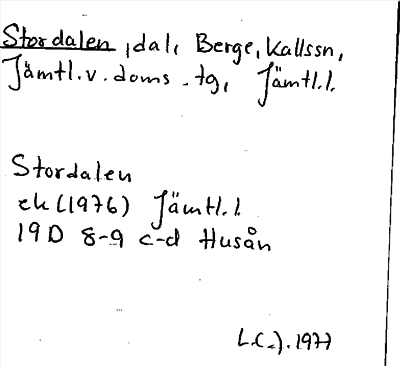 Stordalen, dal, Berge, Kallssn,
Jämtl.v. doms. tg, Jämtl.l.
Stordalen
ek (1976) Jämtl.l.
19D 8-9 c-d Husån
1977